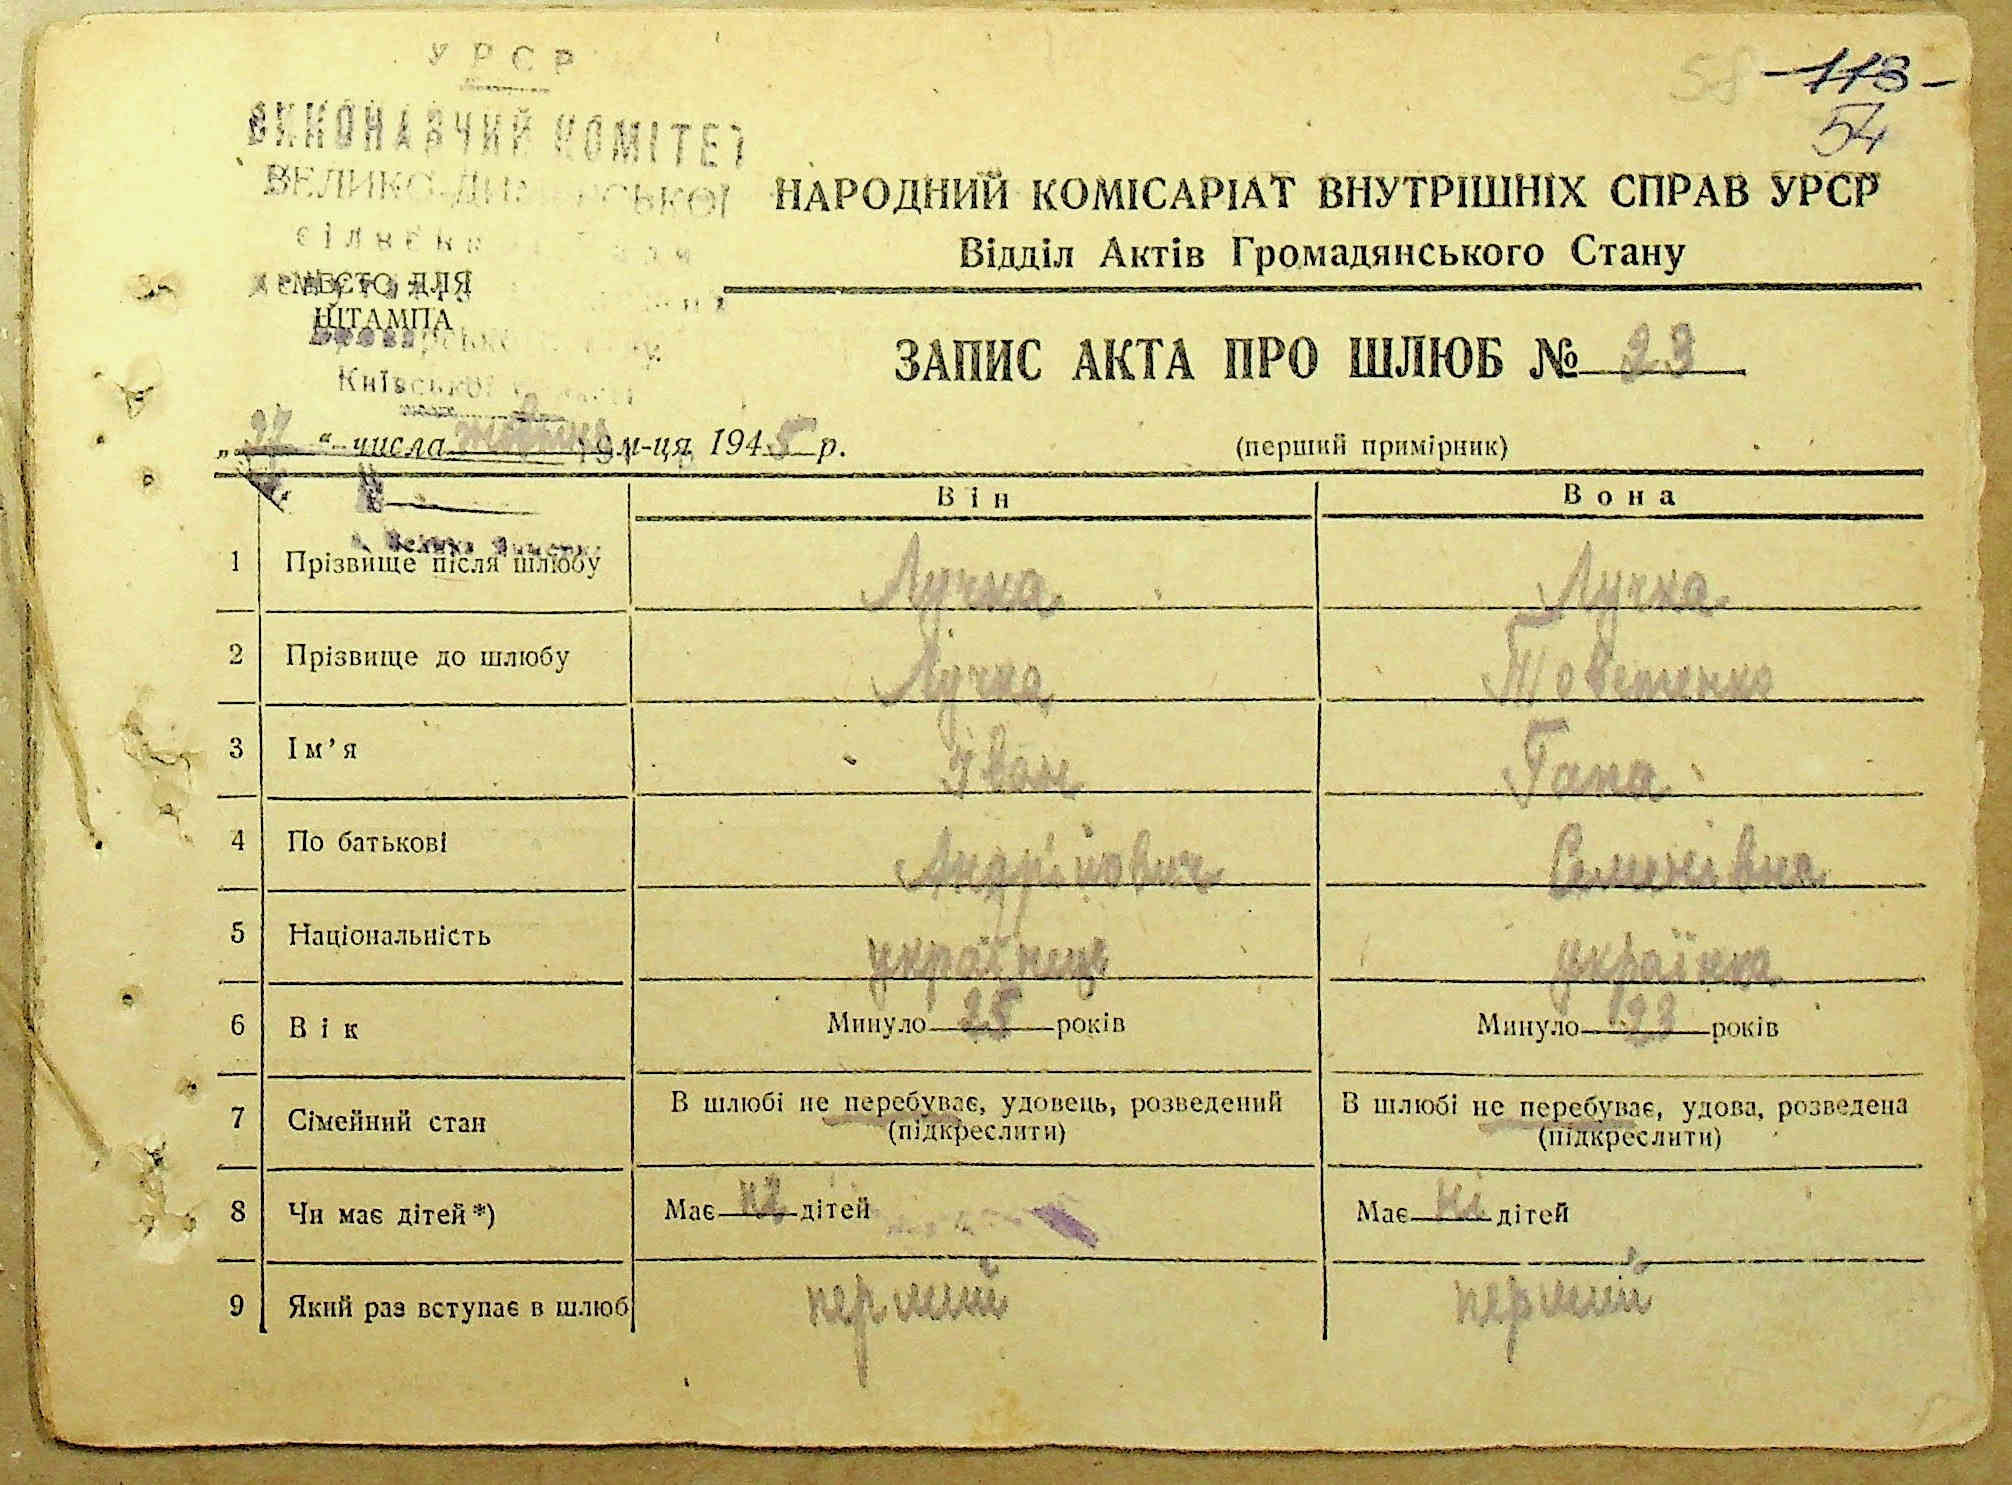 УРСР
ВИКОНАВЧИЙ КОМІТЕТ
ВЕЛИКО-ДИМЕРСЬКОЇ
58 -118-
54
НАРОДНИЙ КОМІСАРІАТ ВНУТРІШНІХ СПРАВ УРСР
Відділ Актів Громадянського Стану
МЕСТО ДЛЯ
ШТАМПА
Київської
ЗАПИС АКТА ПРО ШЛЮБ № 23
„27“ числа м-ця 1945 р.
(перший примірник)
Він Вона
1 Прізвище після шлюбу Лучка Лучка
2 Прізвище до шлюбу Лучка
3 Ім’я Іван Гана
4 По батькові Андрійович Семенівна
5 Національність українець українка
6 Вік Минуло 25 років Минуло 23 років
7 Сімейний стан В шлюбі не перебуває, удовець, розведений В шлюбі не перебуває, удова, розведена
(підкреслити) (підкреслити)
8 Чи має дітей*) Має ні дітей Має ні дітей
9 Який раз вступає в шлюб перший перший